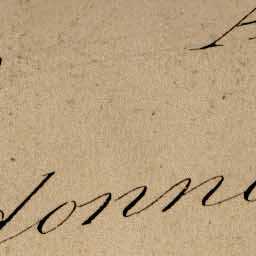 A
donn